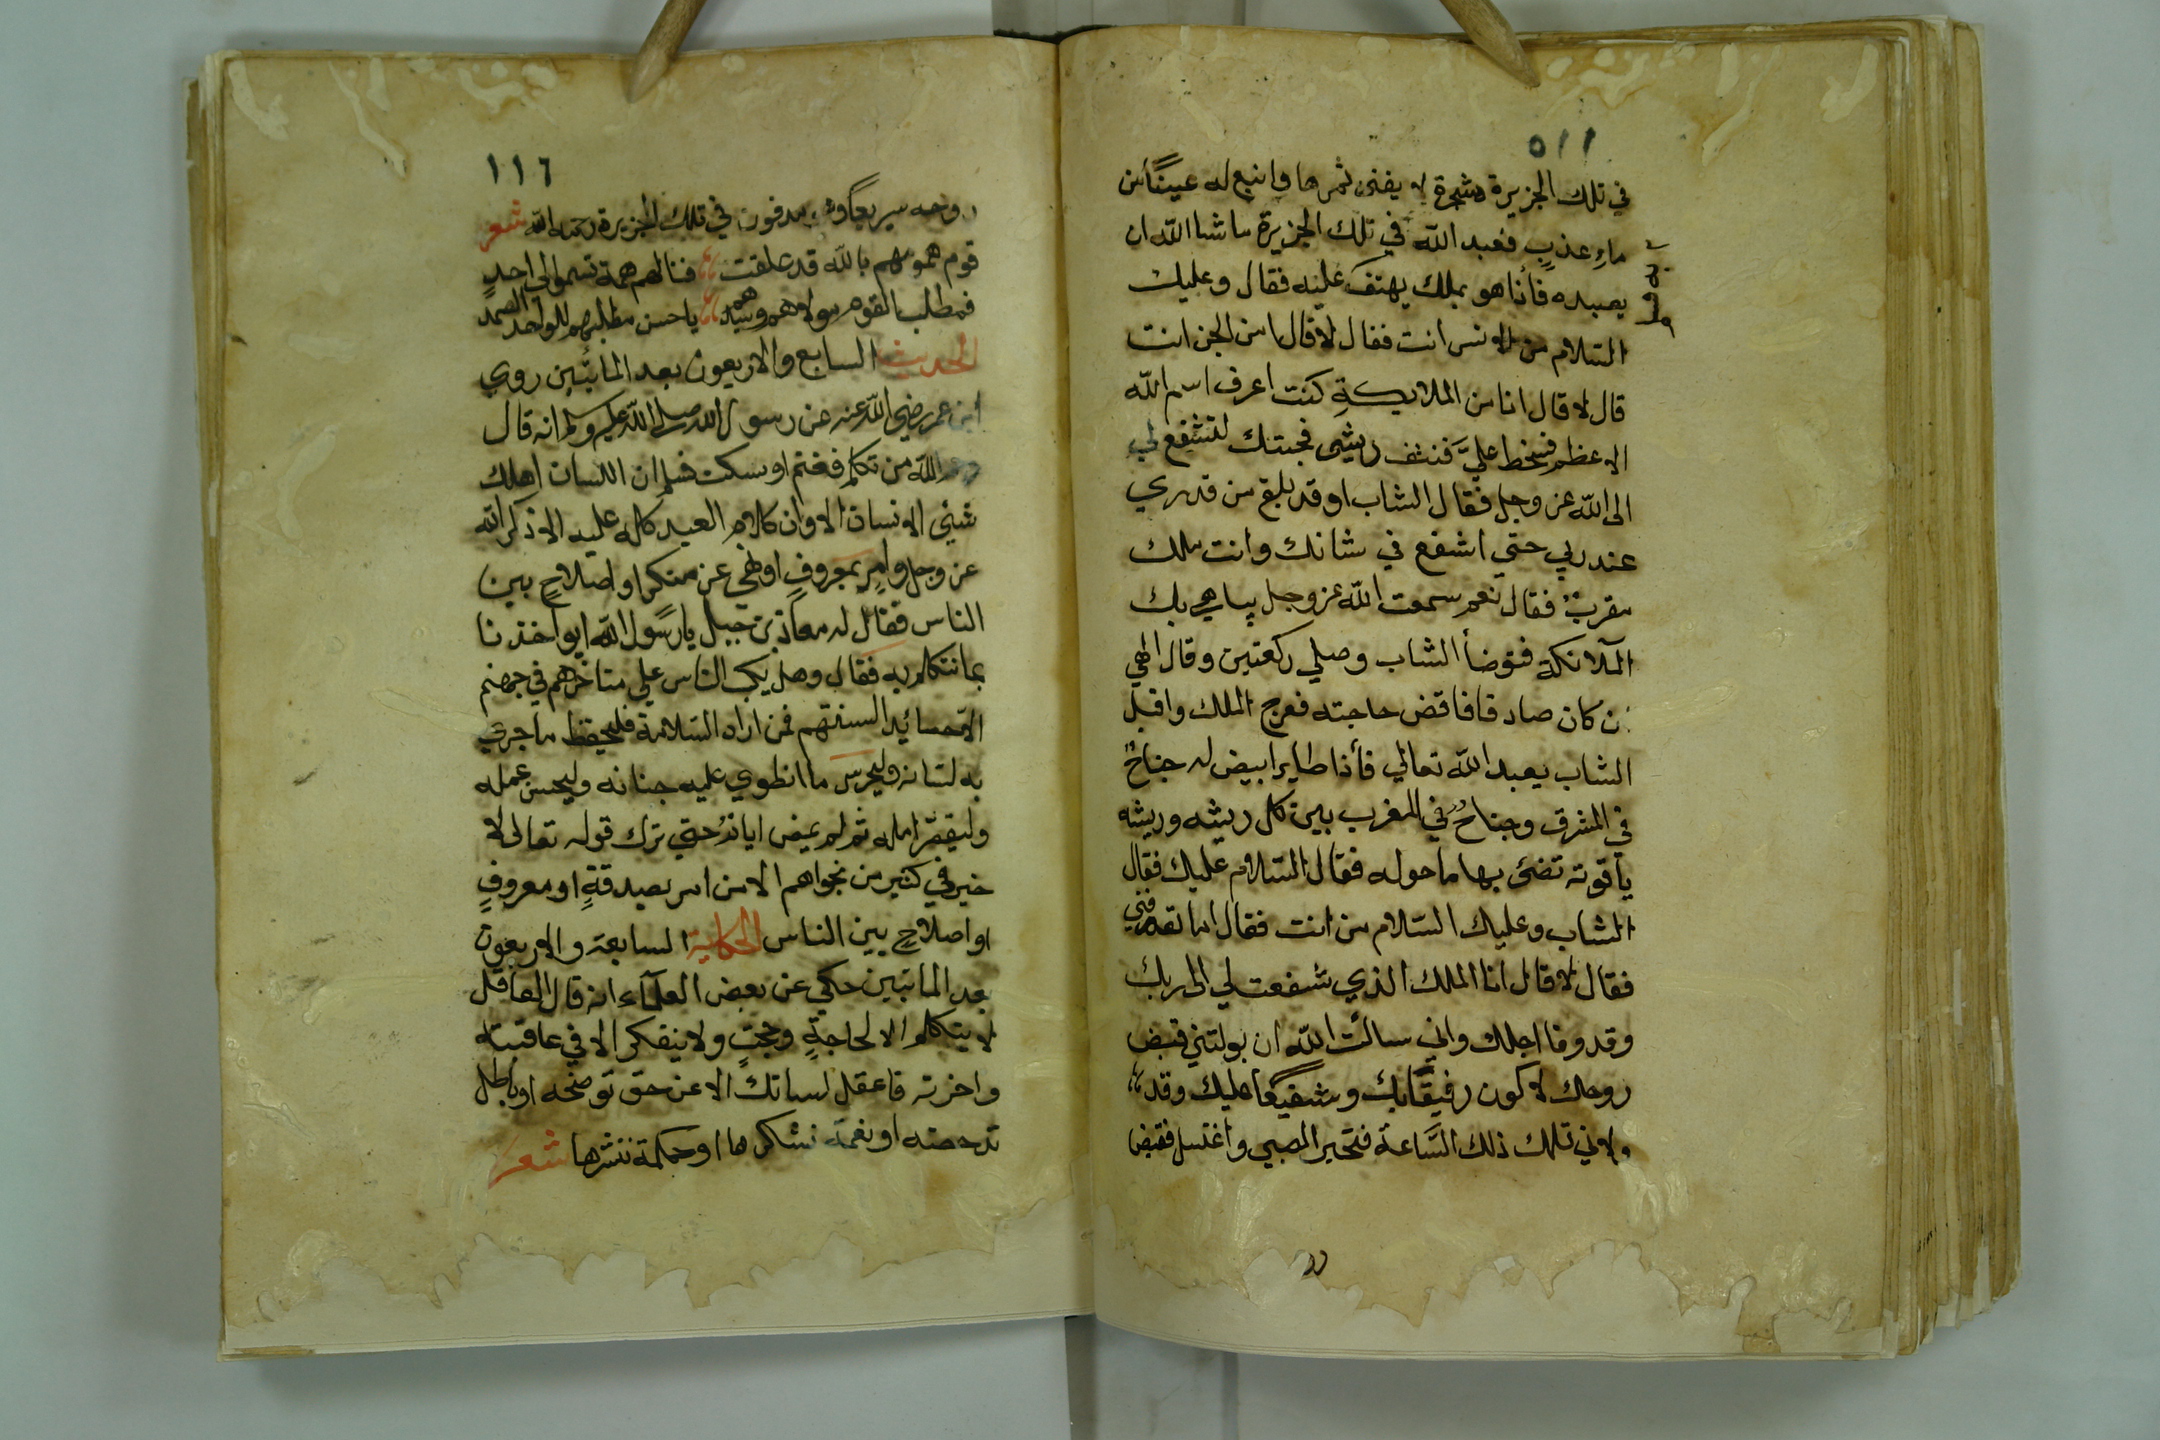 ١١٥
في تلك الجزيرة شجرة لا يفنى ثمرها وانبع له عينًا من
ماءِ عذبٍ فعبد الله في تلك الجزيرة ماشاالله ان
يعبده فأذاهو بملك يهتف عليه فقال وعليك
السّلام من الانس انت فقال لا قال امن الجن انت
قال لا قال انا من الملائكةِ كنت اعرف اسم الله
الاعظم فسخط عليَّ فنتف ريشى فجئتك لتشفع لي
الى الله عز وجل فقال الشاب اوقد بلغ من قدري
عند ربي حتي اشفع في شانك وانت ملك
مقربٌ فقال نعم سمعت الله عز وجل يباهي بك
الملائكة فتوضأ الشاب وصلي ركعتين وقال الهي
ان كان صادقا فاقض حاجته فعرج الملك واقبل
الشاب يعبد الله تعالي فأذا طايرا بيض له جناحٌ
في المشرق وجناحٌ في المغرب بين كل ريشه وريشه
ياقوته تضئ بها ماحوله فقال السلام عليك فقال
الشاب وعليك السّلام من انت فقال اما تعرفني
فقال لا قال انا الملك الذي شفعت لي الى ربك
وقد وفا اجلك واني سالت الله ان يوليني قبض
روحك لاكون رفيقًا بك وشفيعًا عليك وقد
ولاني تلك ذلك السَّاعة فتحير الصبي واغتسل فقبض
١١٦
روحه سريعا وهو مدفون في تلك الجزيرة رحمه الله شعر
قوم همومهم بالله قد علقت فمالهم همة تسموالى احدٍ
فمطلب القوم مولاهم وسيدهم ياحسن مطلبهم للواحد الصمد
الحديث السابع والاربعون بعد المائتين روي
ابن عمر رضي الله عنه عن رسول الله صلى الله عليه وسلم انه قال
رحم الله من تكلم فغنم او سكت فسلم ان اللسان اهلك
شيئ الانسان الا وان كلام العبد كله عليه الا ذكر الله
عز وجل وامرٍ بمعروفٍ او نهي عن منكر او اصلاحٍ بين
الناس فقال له معاذ بن جبل يا رسول الله ايواخذ نا
بما نتكلم به فقال وهل يكب الناس علي مناخرهم في جهنم
الا حصائد السنتهم فمن اراد السّلامة فليحفظ ماجري
به لسانه وليحرس ما انطوي عليه جنانه وليحسن عمله
وليقصر امله ثم لم يمض اياتٌ حتي ترك قوله تعالى لا
خير في كثير من نجواهم الا من امر بصدقةٍ او معروفٍ
او اصلاحٍ بين الناس الحكاية السابعة والاربعون
بعد المائتين حكي عن بعض العلمآء انه قال العاقل
لا يتكلم الا لحاجةٍ وحجتٍ ولا يتفكر الا في عاقبته
واخرته فاعقل لسانك الا عن حق توضحه او باطل
تدحضه او نعمة تشكرها او حكمة تنشرها شعر